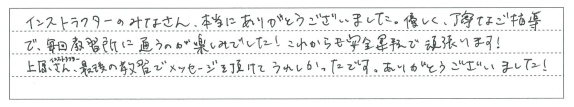 インストラクターのみなさん、本当にありがとうございました。優しく、丁寧なご指導
で、毎回教習所に通うのが楽しみでした！これからも安全運転で頑張ります！
上原インストラクターさん、最後の教習でメッセージを頂けてうれしかったです。ありがとうございました！